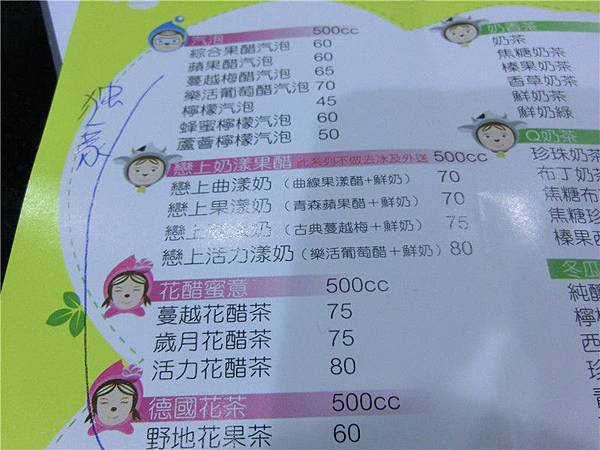 汽泡 500cc
綜合果醋汽泡 60
蘋果醋汽泡 60
蔓越梅醋汽泡 65
樂活葡萄醋汽泡 70
檸檬汽泡 45
蜂蜜檸檬汽泡 60
蘆薈檸檬汽泡 50
戀上奶漾果醋 此系列不做去冰及外送 500cc
戀上曲漾奶（曲線果漾醋+鮮奶） 70
戀上果漾奶（青森蘋果醋+鮮奶） 70
戀上 漾奶（古典蔓越梅+鮮奶） 75
戀上活力漾奶（樂活葡萄醋+鮮奶） 80
花醋蜜意 500cc
蔓越花醋茶 75
歲月花醋茶 75
活力花醋茶 80
德國花茶 500cc
野地花果茶 60
奶香茶
奶茶
焦糖奶茶
榛果奶茶
香草奶茶
鮮奶茶
鮮奶綠
Q奶茶
珍珠奶
布丁奶
焦糖布
焦糖珍
榛果西
冬瓜
純
檸
西
珍